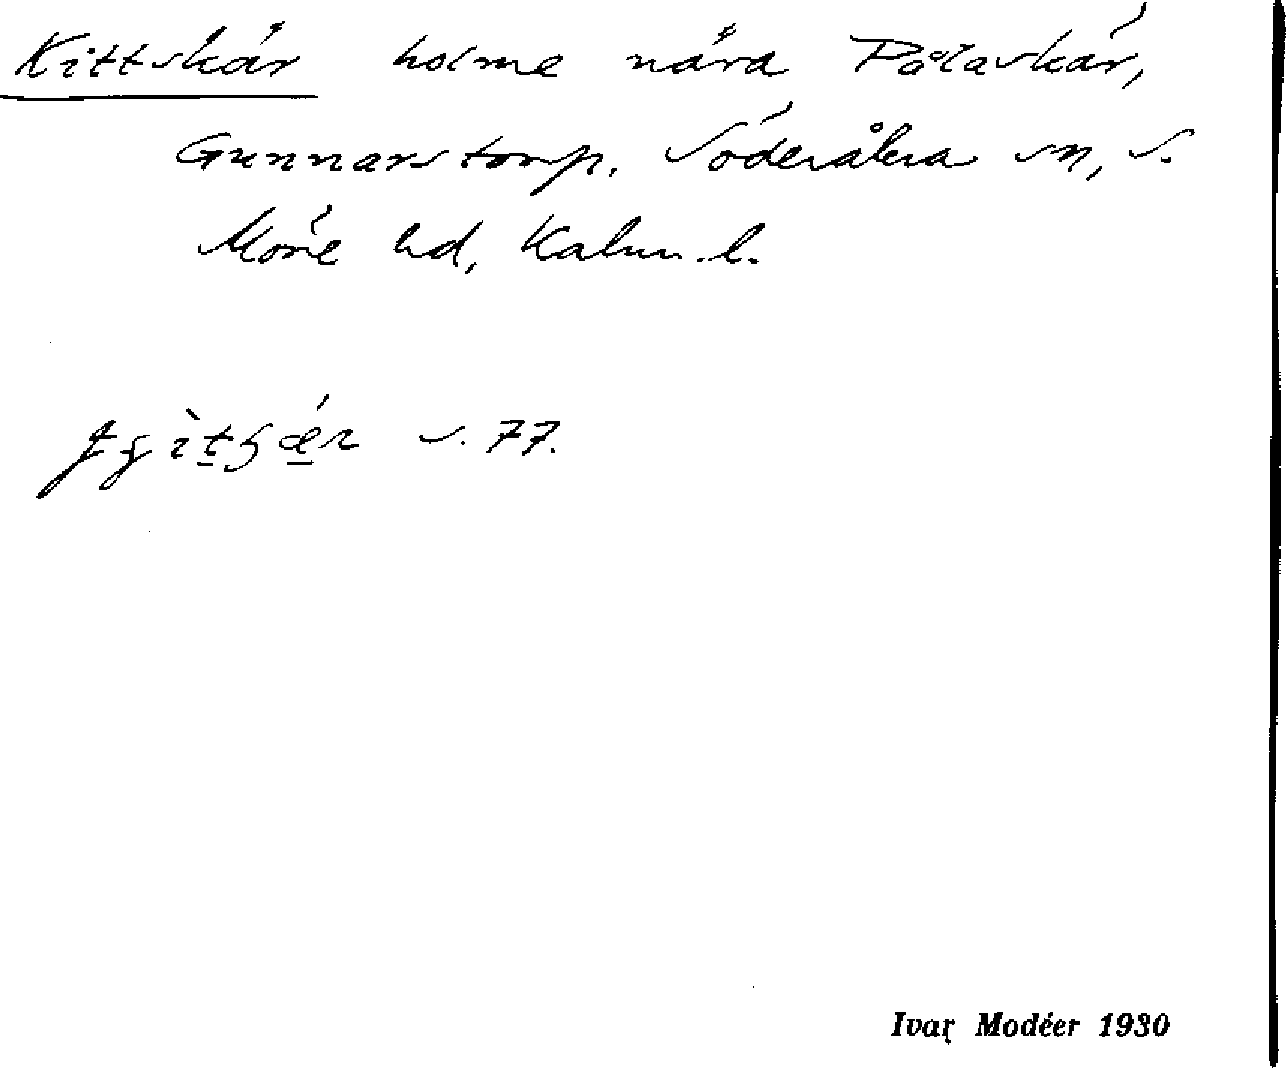 Kittskär holme nära Pålaskär,
Gunnarstorp, Söderåkra sn, S.
Möre hd, Kalm. l.
s. 77.
Ivar Modéer 1930